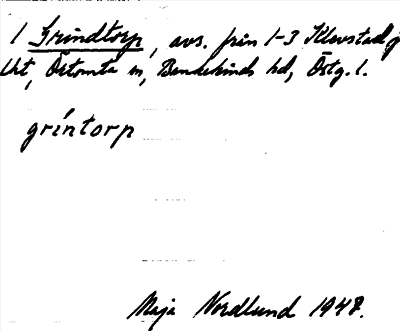 1 Grindtorp, avs. från 1-3 Klevstad j
Urt, Östomta m, Bandekinds hd, Östg. l.
grintorp
Maja Nordlund 1948.